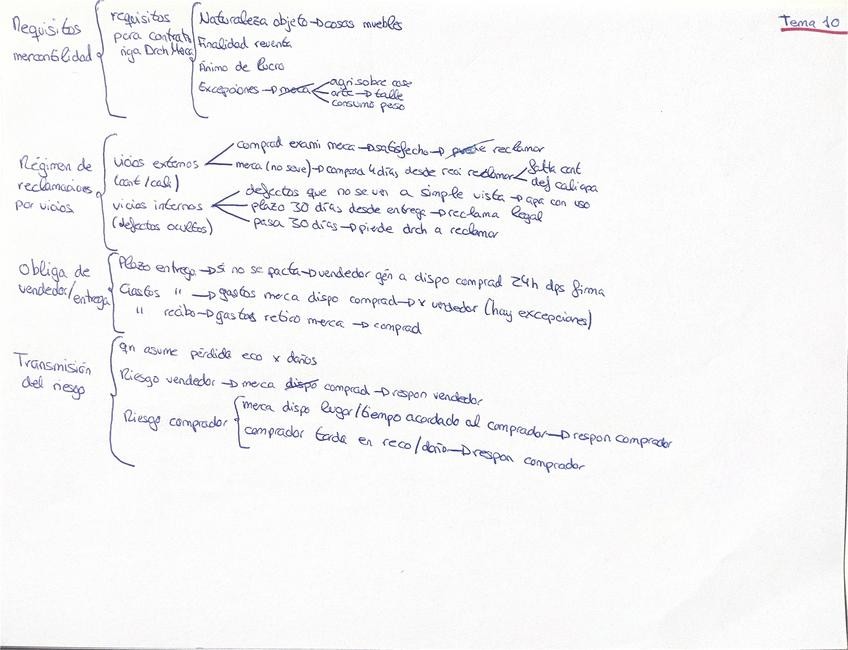 Tema 10
Requisitos mercantilidad
requisitos para contrato riga Drch Merc
Naturaleza objeto → cosas muebles
Finalidad reventa
Ánimo de lucro
Excepciones →
agri sobre cose
arte → talle
consumo peso
Régimen de reclamaciones por vicios
vicios externos (cant/cali)
comprad exami merca → satisfecho → reclamar
merca (no se ve) → compara 4 días desde reci reclamar
falta cant
def cali apa
vicios internos (defectos ocultos)
defectos que no se ven a simple vista → apa con uso
plazo 30 días desde entrega → reclama legal
pasa 30 días → pierde drch a reclamar
Obliga de vendedor/entrega
Plazo entrega → si no se pacta → vendedor gén a dispo comprad 24h dps firma
Gastos " → gastos merca dispo comprad → x vendedor (hay excepciones)
" recibo → gastos retiro merca → comprad
Transmisión del riesgo
qn asume pérdida eco x daños
Riesgo vendedor → merca dispo comprad → respon vendedor
Riesgo comprador
merca dispo lugar/tiempo acordado al comprador → respon comprador
comprador tarda en reco/daño → respon comprador